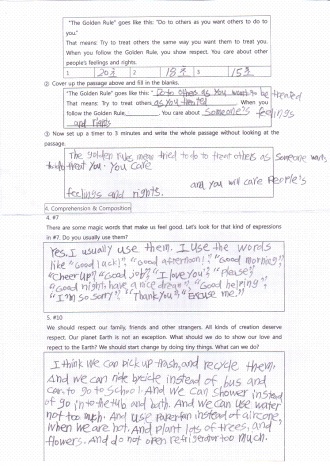 "The Golden Rule" goes like this: "Do to others as you want others to do to
you"
That means: Try to treat others the same way you want them to treat you.
When you follow the Golden Rule, you show respect. You care about other
people's feelings and rights.
1 20초 2 18초 3 15초
② Cover up the passage above and fill in the blanks.
"The Golden Rule" goes like this: "Do to others as you want to be treated
That means: Try to treat others as you treated. When you
follow the Golden Rule, You care about someone's feelings
and rights
③ Now set up a timer to 3 minutes and write the whole passage without looking at the
passage.
The golden rule, means tried to do to treat others as someone wants
to treat you. You care
and you will care people's
feelings and rights.
4. Comprehension & Composition
4. #7
There are some magic words that make us feel good. Let's look for that kind of expressions
in #7. Do you usually use them?
Yes, I usually use them. I use the words
like "Good luck!", "Good afternoon!", "Good morning!"
"Cheer up!" "Good job!" "I love you", "Please"
"Good night, have a nice dream" "Good helping",
"I'm so sorry", "Thank you", "Excuse me."
5. #10
We should respect our family, friends and other strangers. All kinds of creation deserve
respect. Our planet Earth is not an exception. What should we do to show our love and
repect to the Earth? We should start change by doing tiny things. What can we do?
I think we can pick up trash, and recycle them.
And we can ride bicicle instead of bus and
car to go to school. And we can shower instead
of go in to the tub and bath. And we can use water
not too much. And use paper fan instead of aircone,
when we are hot. And plant lots of trees, and
flowers. And do not open refrigerator too much.